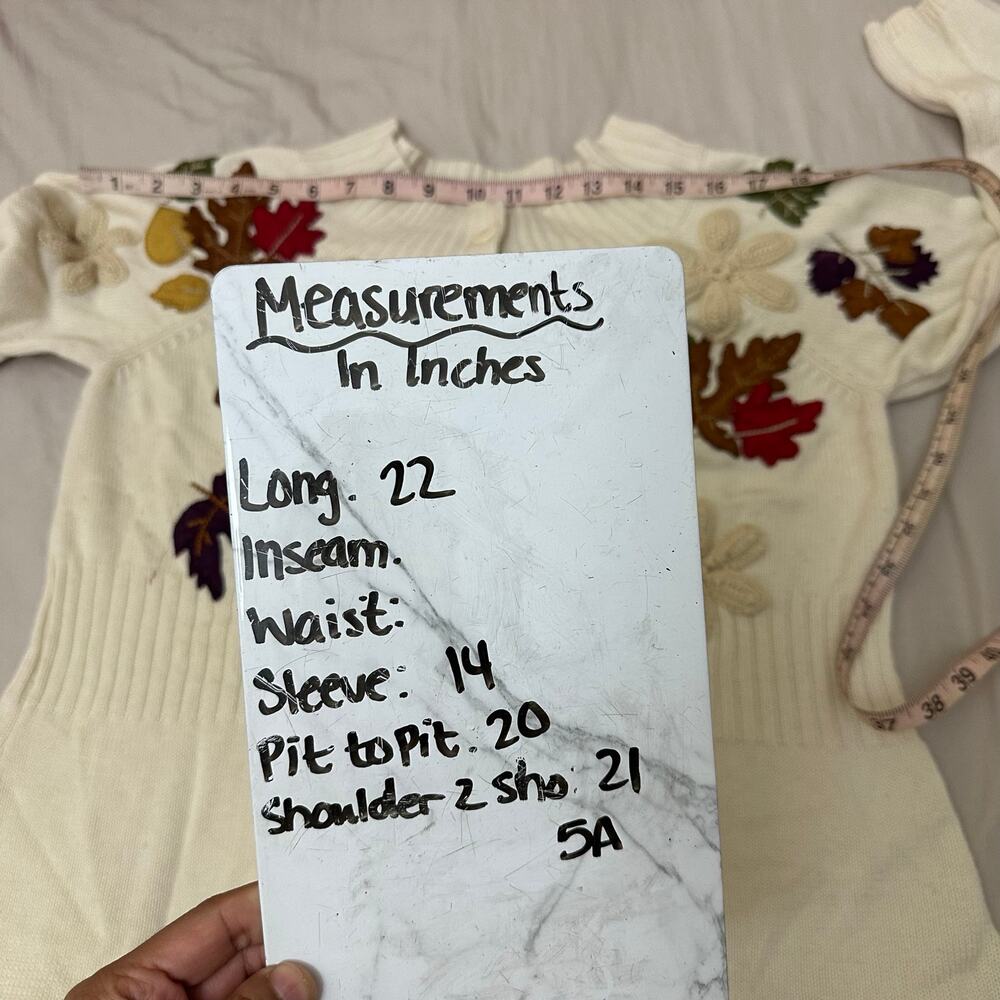 1 2 3 4 5 6 7 8 9 10 11 12 13 14 15 16 17 18
Measurements
In Inches
Long. 22
Inseam.
Waist:
Sleeve: 14
Pit to pit. 20
Shoulder 2 sho: 21
5A
37 38 39 40